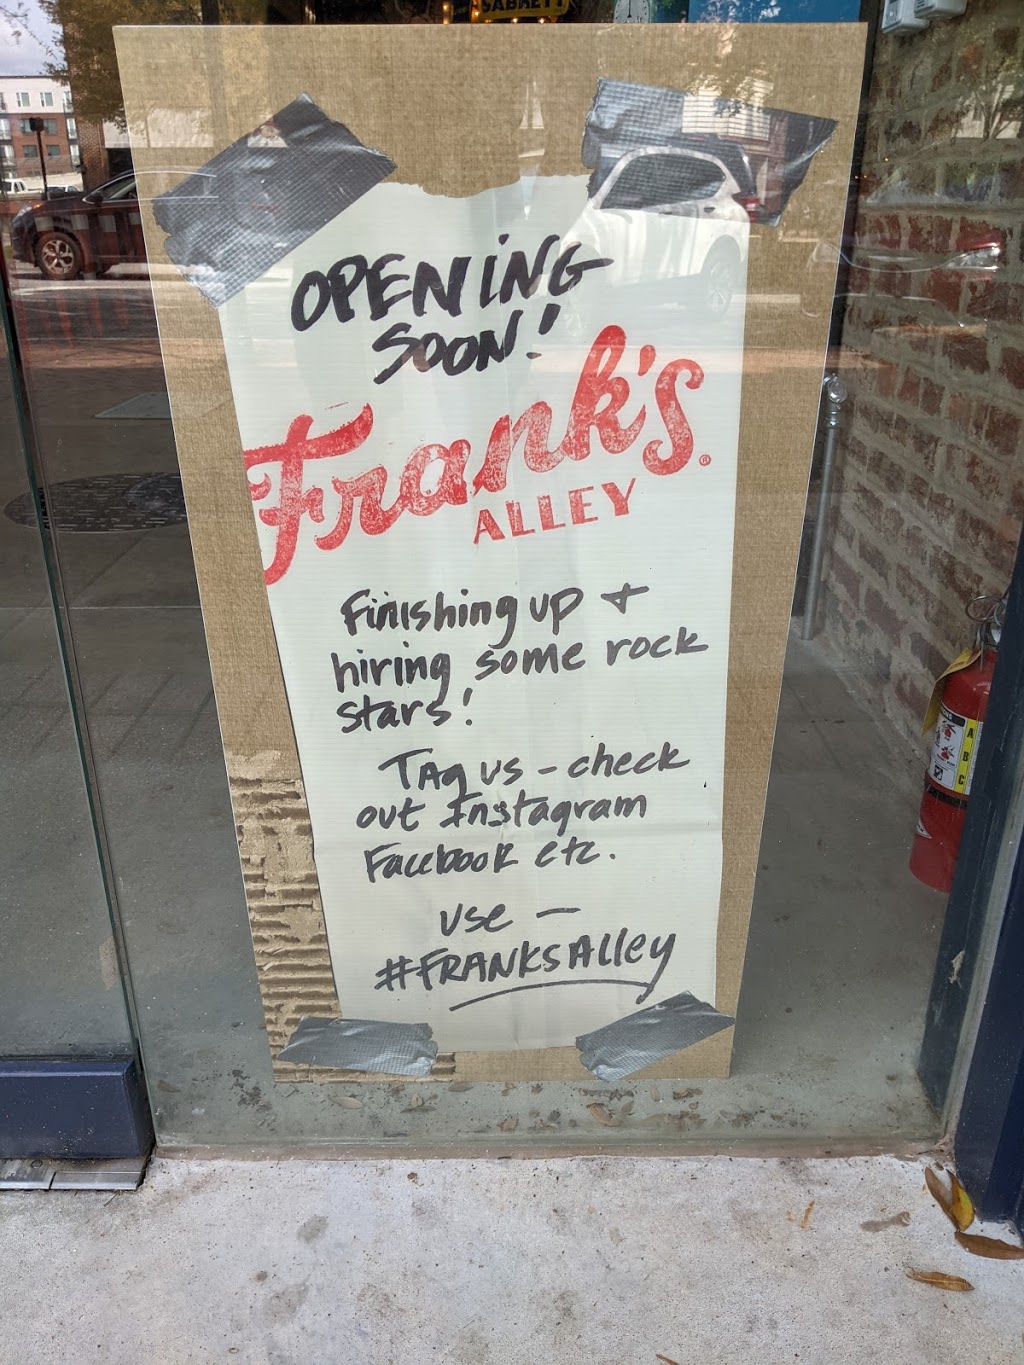 SABRETT
OPENING
SOON!
Frank's®
ALLEY
Finishing up +
hiring some rock
stars!
TAg us - check
out Instagram
Facebook etc.
use -
#FRANKSAlley
A
B
C